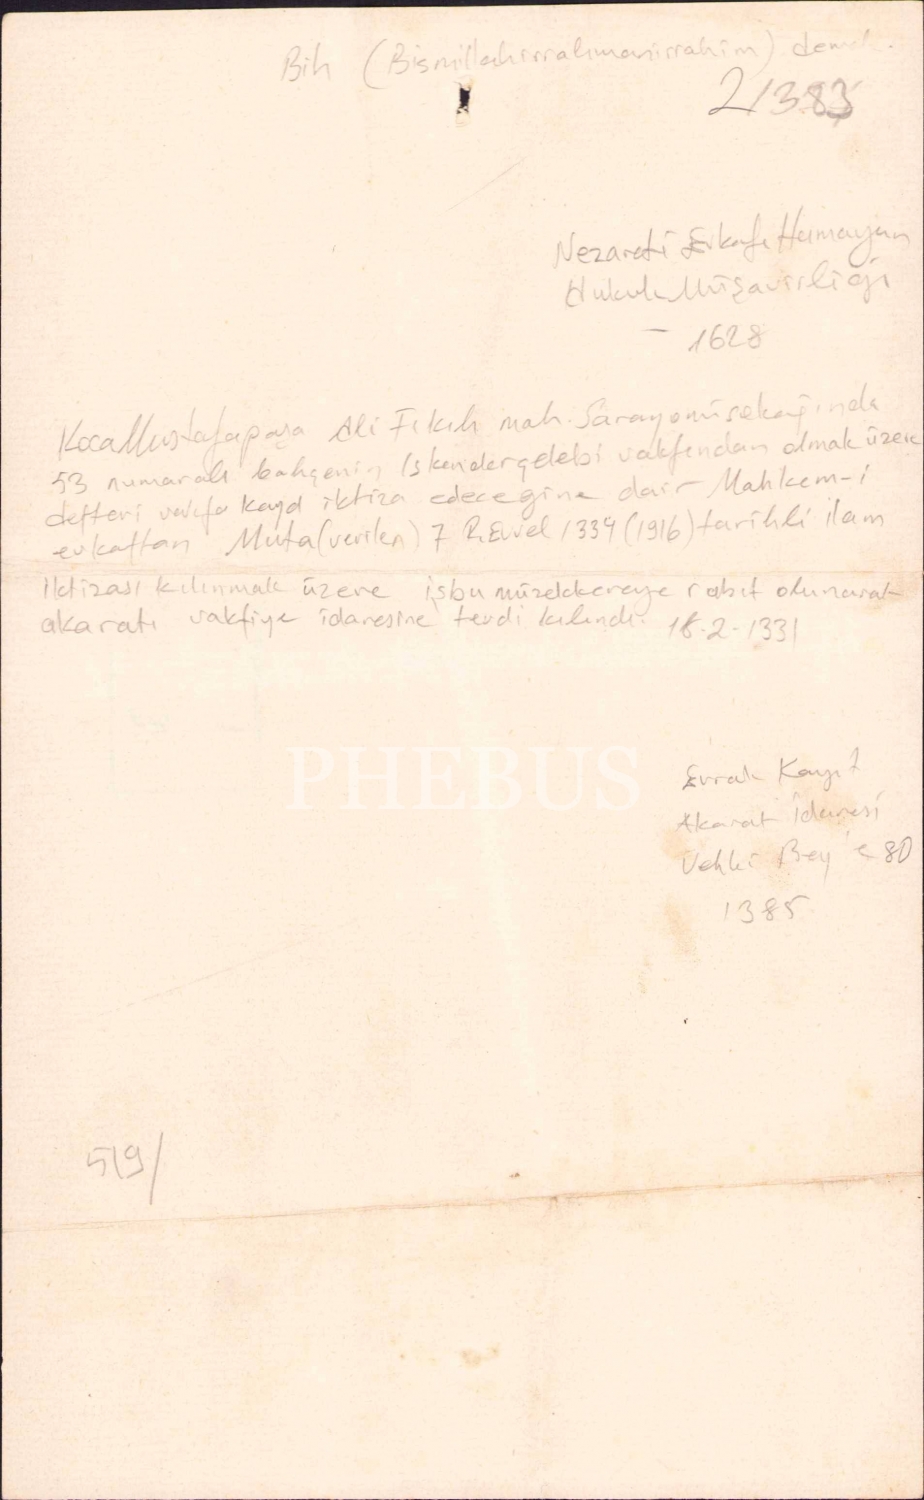 Bih (Bismillahirrahmanirrahim) demek.
21383
Nezareti Evkafı Humayun
Hukuk Müşavirliği
- 1628
KocaMustafapaşa Ali Fıkıh mah. Sarayönü sokağında
53 numaralı bahçenin İskenderçelebi vakfından olmak üzere
defteri vakfa kayd iktiza edeceğine dair Mahkem-i
evkaftan Muta(verilen) 7 R.Evvel 1334 (1916) tarihli ilam
iktizası kılınmak üzere işbu müzekkereye rabıt olunarak
akaratı vakfiye idaresine tevdi kılındı. 18-2-1331
PHEBUS
Evrak Kayıt
Akarat İdaresi
Vehbi Bey'e 80
1385
519/